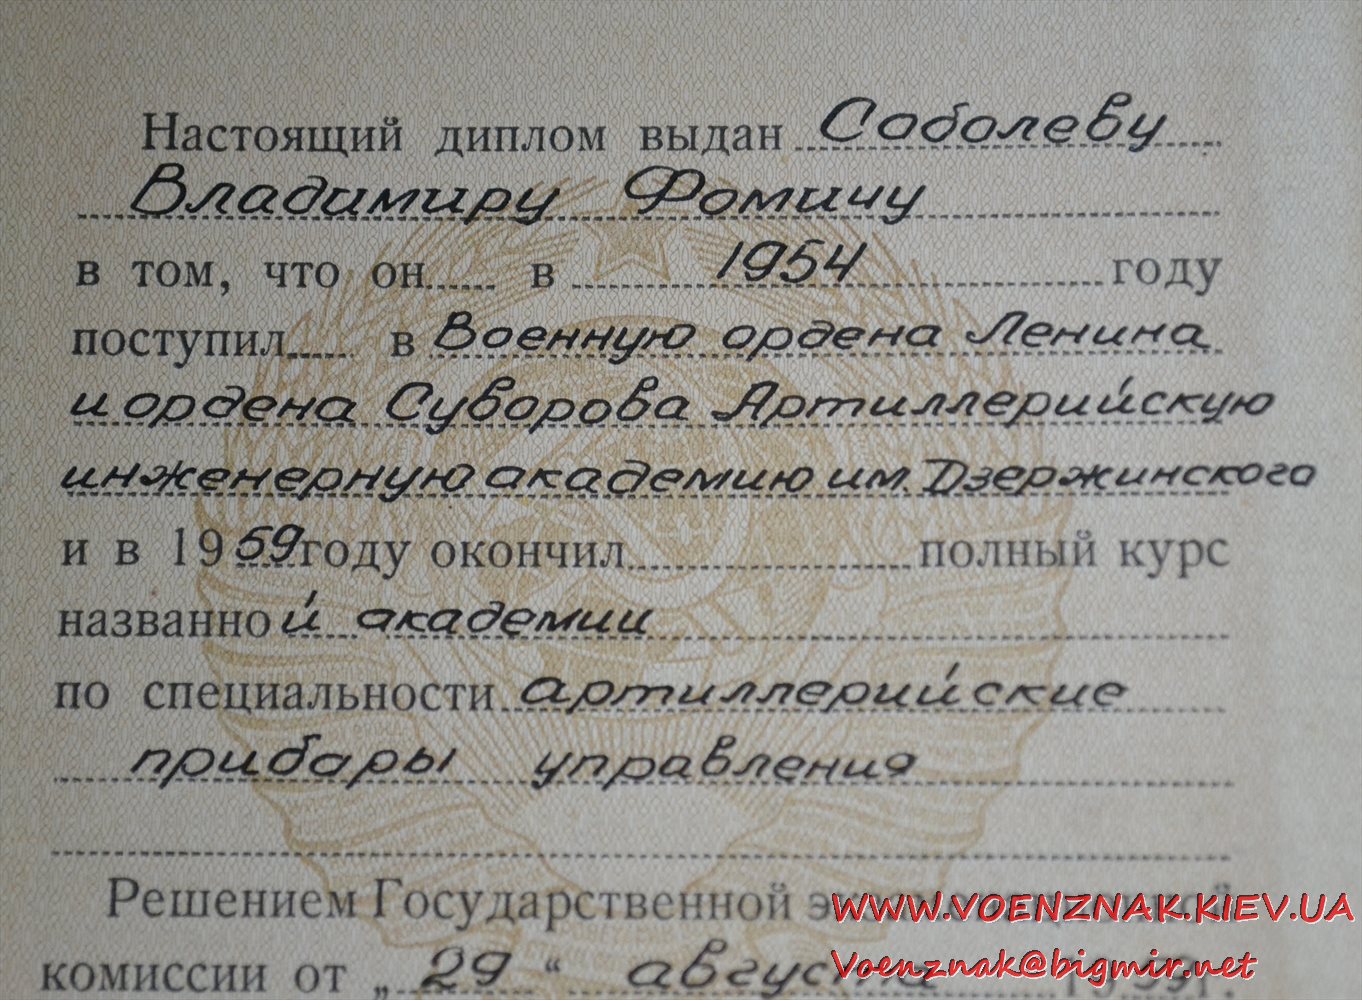 Настоящий диплом выдан Соболеву
Владимиру Фомичу
в том, что он в 1954 году
поступил в Военную ордена Ленина
и ордена Суворова Артиллерийскую
инженерную академию им. Дзержинского
и в 1959 году окончил полный курс
названной академии
по специальности артиллерийские
приборы управления
Решением Государственной
WWW.VOENZNAK.KIEV.UA
комиссии от „ 29 “ августа
Voenznak@bigmir.net